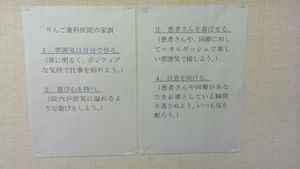 りんご歯科医院の家訓
1．雰囲気は自分で作る。
（常に明るく、ポジティブ
な気持で仕事を始めよう。）
2．遊び心を持つ。
（院内が活気に溢れるよう
な遊びをしよう。）
3．患者さんを喜ばせる。
（患者さんや、同僚に対し
てエネルギッシュで楽し
い雰囲気で接しよう。）
4．注意を向ける。
（患者さんや同僚があな
たを必要としている瞬間
を逃さぬよう、いつも気を
配ろう。）